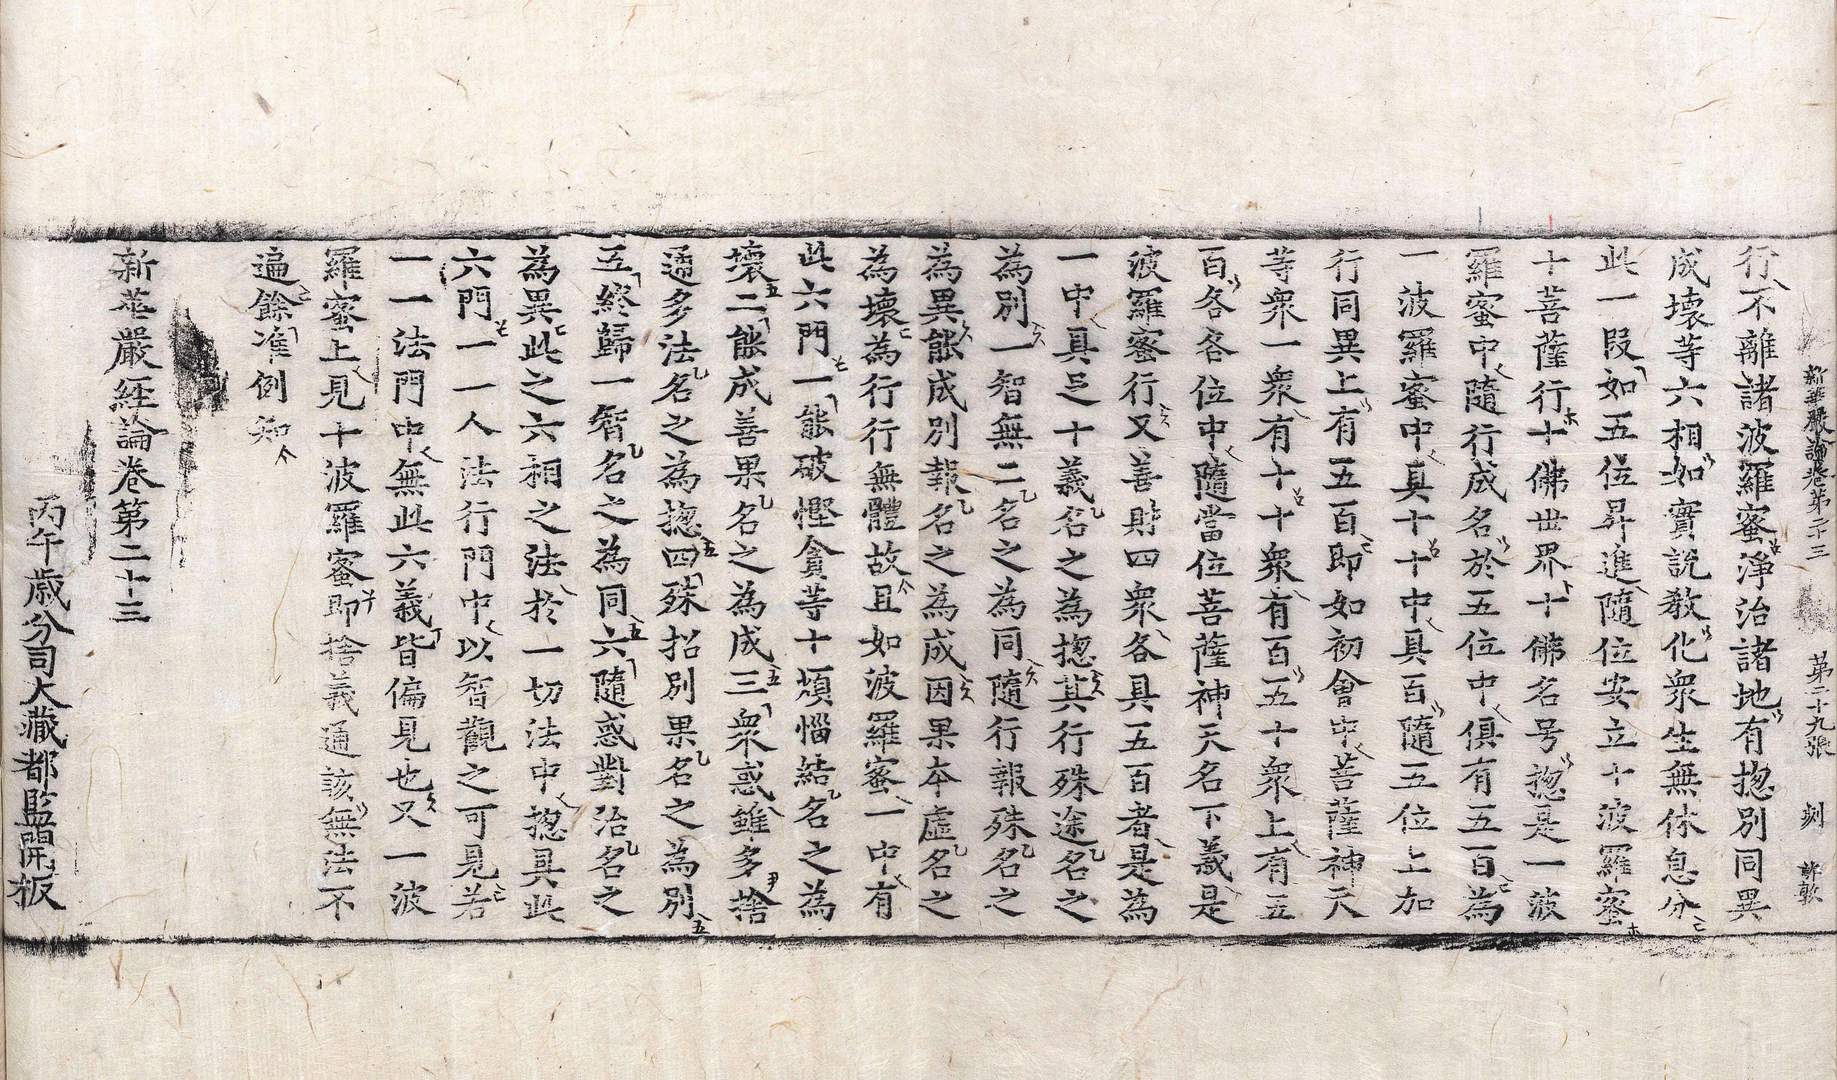 新華嚴論卷第二十三 第二十九張 刻 許敦
行不離諸波羅蜜淨治諸地有揔別同異
成壞等六相如實說教化衆生無休息分
此一段如五位昇進隨位安立十波羅蜜
十菩薩行十佛世界十佛名号揔是一波
羅蜜中隨行成名於五位中俱有五百為
一波羅蜜中具十十中具百隨五位上加
行同異上有五百即如初會中菩薩神天
等衆一衆有十十衆有百五十衆上有五
百各各位中隨當位菩薩神天名下義是
波羅蜜行又善財四衆各具五百者是為
一中具足十義名之為揔其行殊途名之
為別一智無二名之為同隨行報殊名之
為異能成別報名之為成因果本虛名之
為壞為行行無體故且如波羅蜜一中有
此六門一能破慳貪等十煩惱結名之為
壞二能成善果名之為成三衆惑雖多捨
通多法名之為揔四殊招別果名之為別
五終歸一智名之為同六隨惑對治名之
為異此之六相之法於一切法中揔具此
六門一一人法行門中以智觀之可見若
一一法門中無此六義皆偏見也又一波
羅蜜上見十波羅蜜即捨義通該無法不
遍餘准例知
新華嚴經論卷第二十三
丙午歲分司大藏都監開板